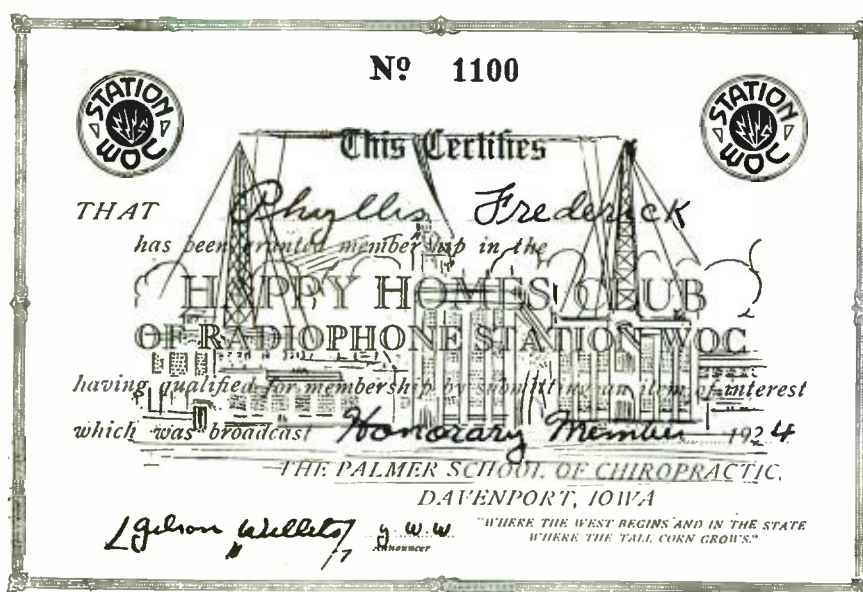 Nº 1100
STATION WOC
STATION WOC
This Certifies
THAT Phyllis Frederick
has been granted membership in the
HAPPY HOMES CLUB
OF RADIOPHONE STATION WOC
having qualified for membership by submitting an item of interest
which was broadcast Honorary Member 1924
THE PALMER SCHOOL OF CHIROPRACTIC,
DAVENPORT, IOWA
"WHERE THE WEST BEGINS AND IN THE STATE
WHERE THE TALL CORN GROWS."
Gilson Willets
Announcer